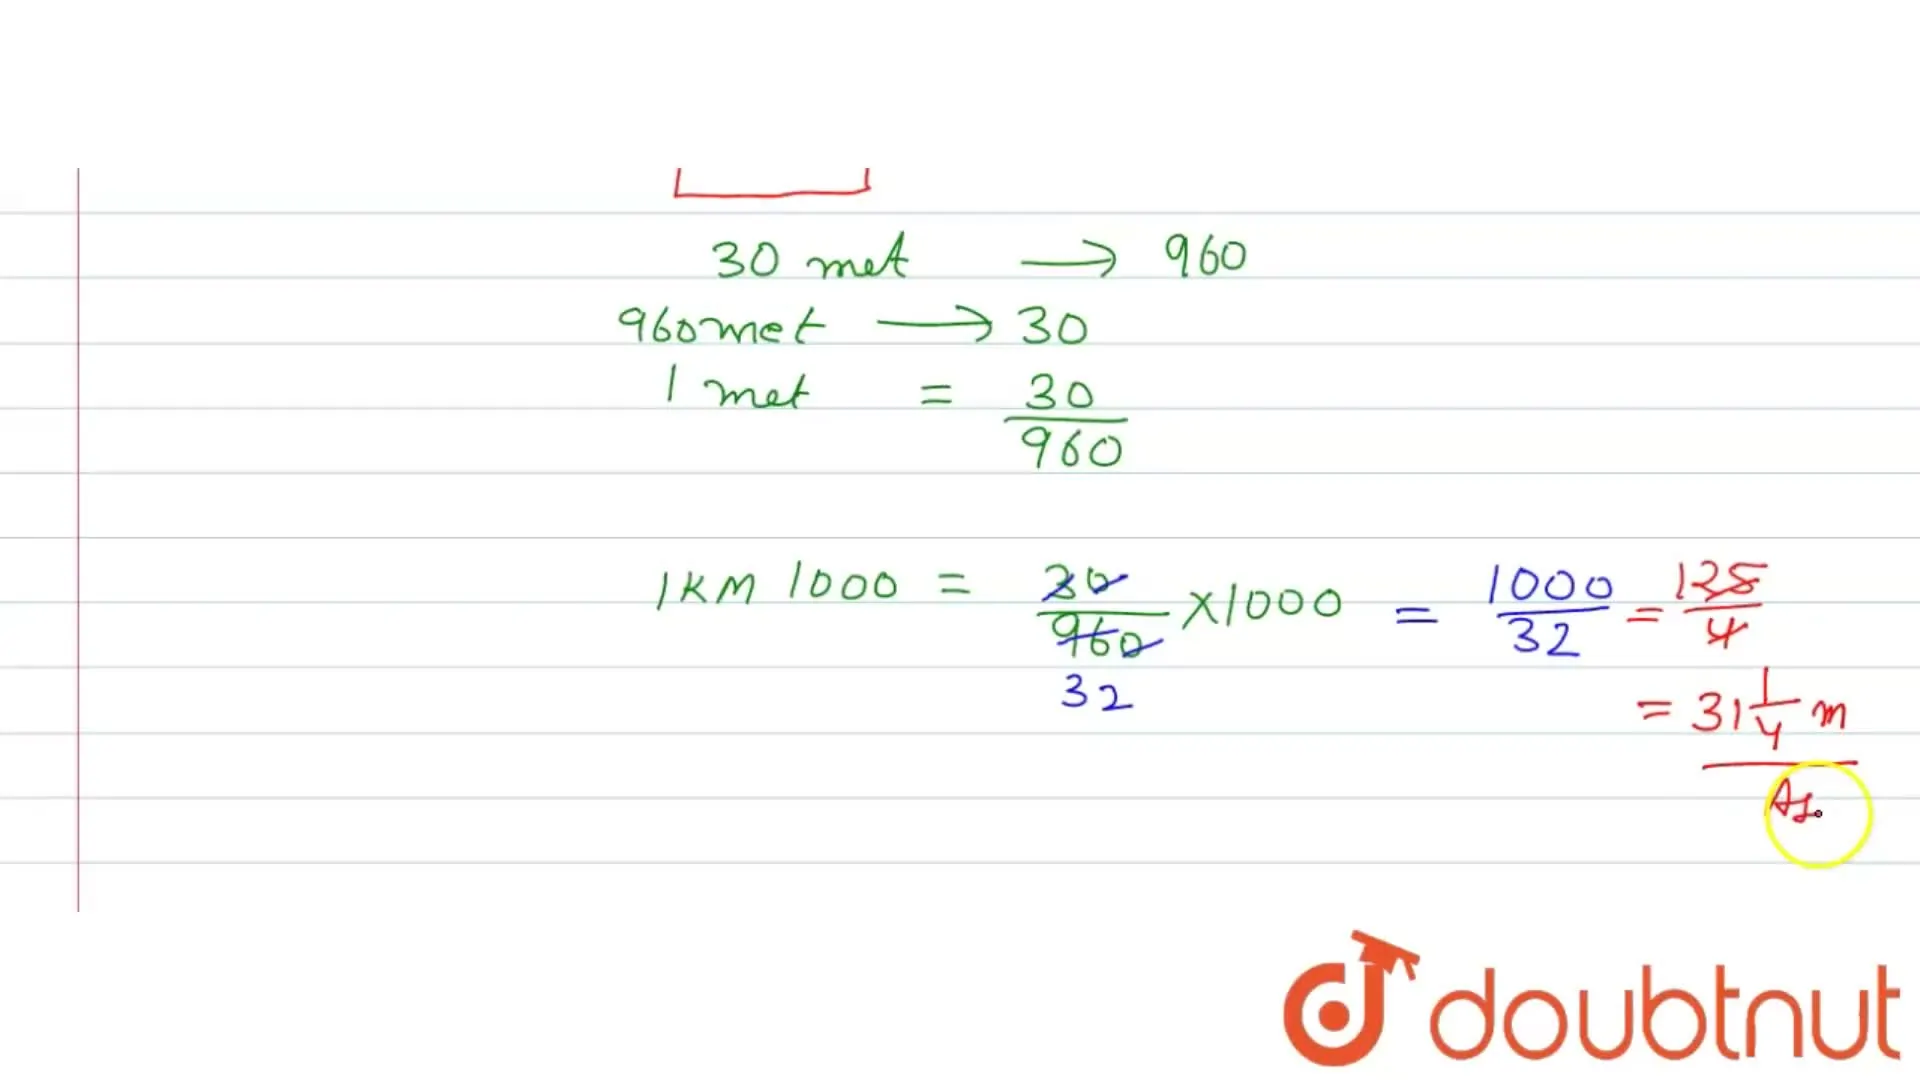 30 met → 960
960met → 30
1 met = 30/960
1KM 1000 = 30/960 ×1000 = 1000/32 = 125/4
32
= 31 1/4 m
As
doubtnut